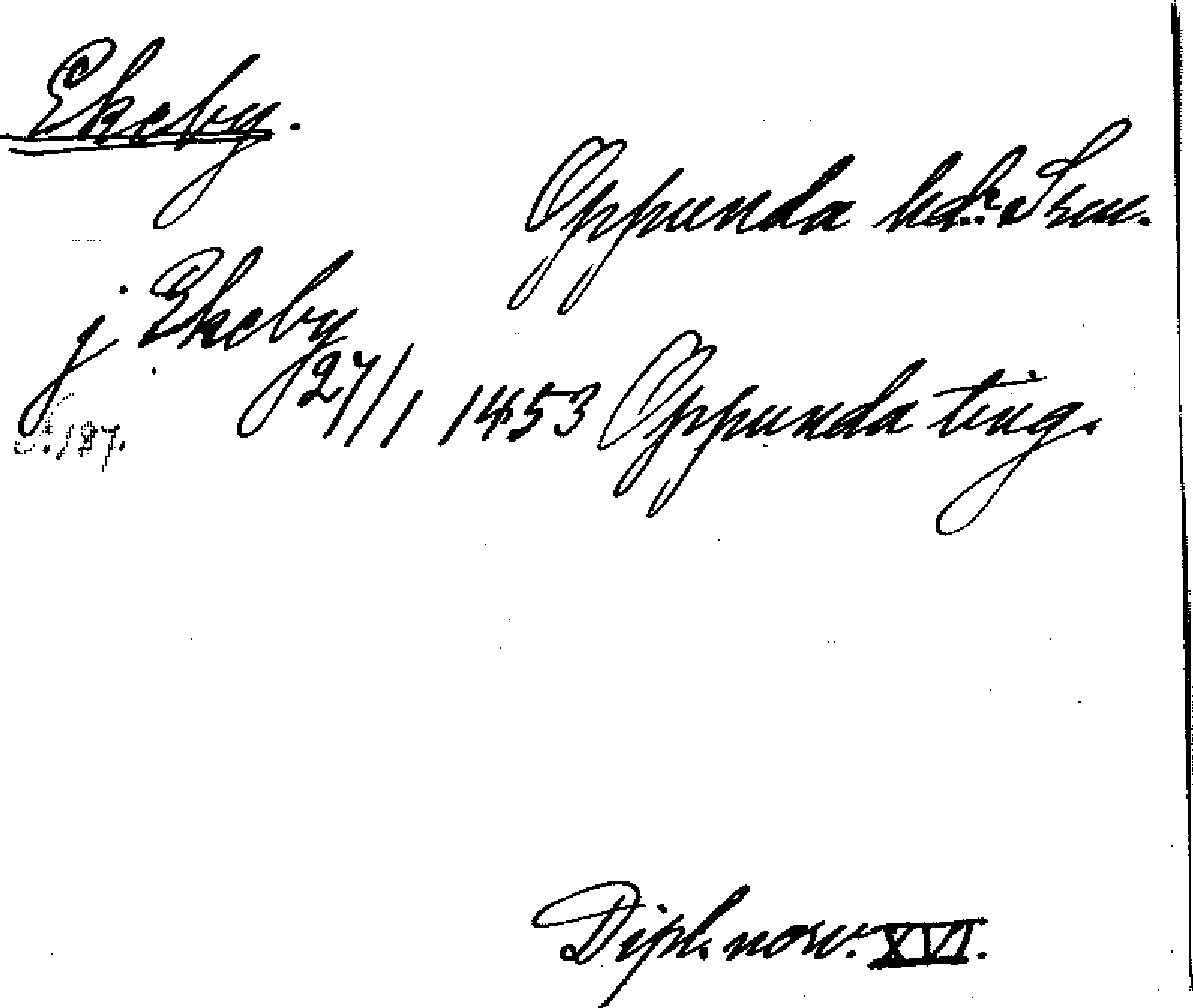 Ekeby.
Oppunda hd. Srm.
j Ekeby
27/1 1453 Oppunda ting.
S. 187.
Dipl. norv. XVI.